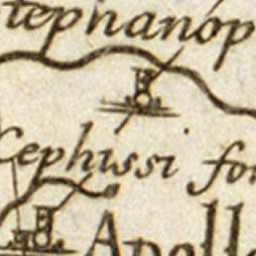 tephanop
Cephissi fo
Apoll